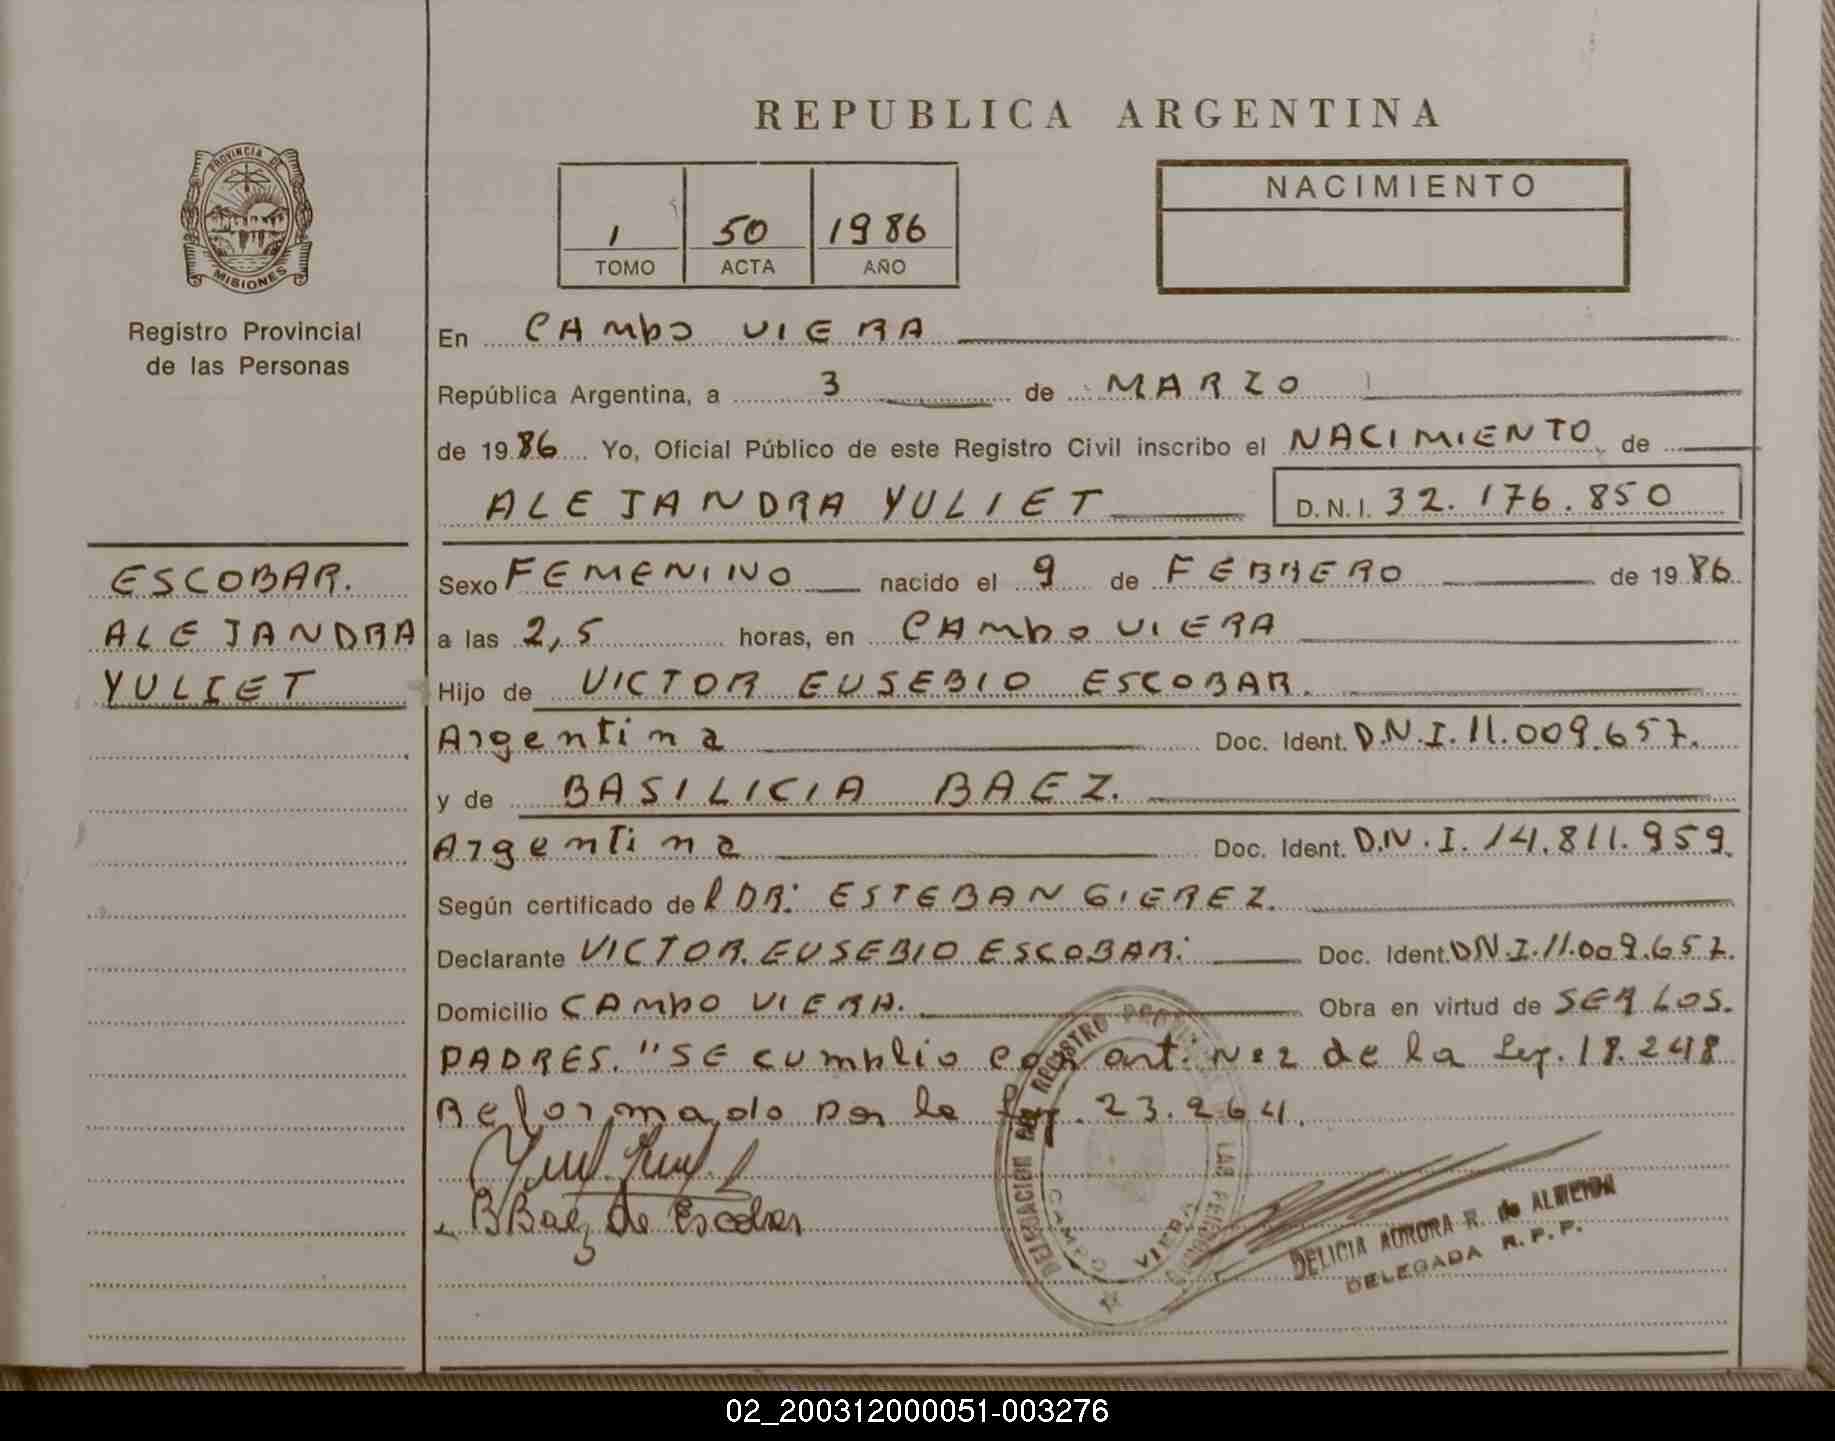 REPUBLICA ARGENTINA
PROVINCIA DE
MISIONES
Registro Provincial
de las Personas
1 50 1986
TOMO ACTA AÑO
NACIMIENTO
En CAMPO VIERA
República Argentina, a 3 de MARZO
de 1986 Yo, Oficial Público de este Registro Civil inscribo el NACIMIENTO de
ALEJANDRA YULIET D.N.I. 32.176.850
ESCOBAR.
ALEJANDRA
YULIET
Sexo FEMENINO nacido el 9 de FEBRERO de 1986
a las 2,5 horas, en CAMPO VIERA
Hijo de VICTOR EUSEBIO ESCOBAR.
Argentina Doc. Ident. D.N.I. 11.009.657.
y de BASILICIA BAEZ.
Argentina Doc. Ident. D.N.I. 14.811.959.
Según certificado del DR: ESTEBAN GIEREZ.
Declarante VICTOR EUSEBIO ESCOBAR: Doc. Ident. DN.I.11.009.657.
Domicilio CAMPO VIERA. Obra en virtud de SER LOS.
PADRES. "SE cumplio con art. Nº 2 de la Ley. 18.248
Reformado por la Ley. 23.264.
BBaez de Escobar
DELEGACION DEL REGISTRO PROVINCIAL DE LAS PERSONAS
CAMPO VIERA
DELICIA AURORA R. de ALMEIDA
DELEGADA R.P.P.
02_200312000051-003276